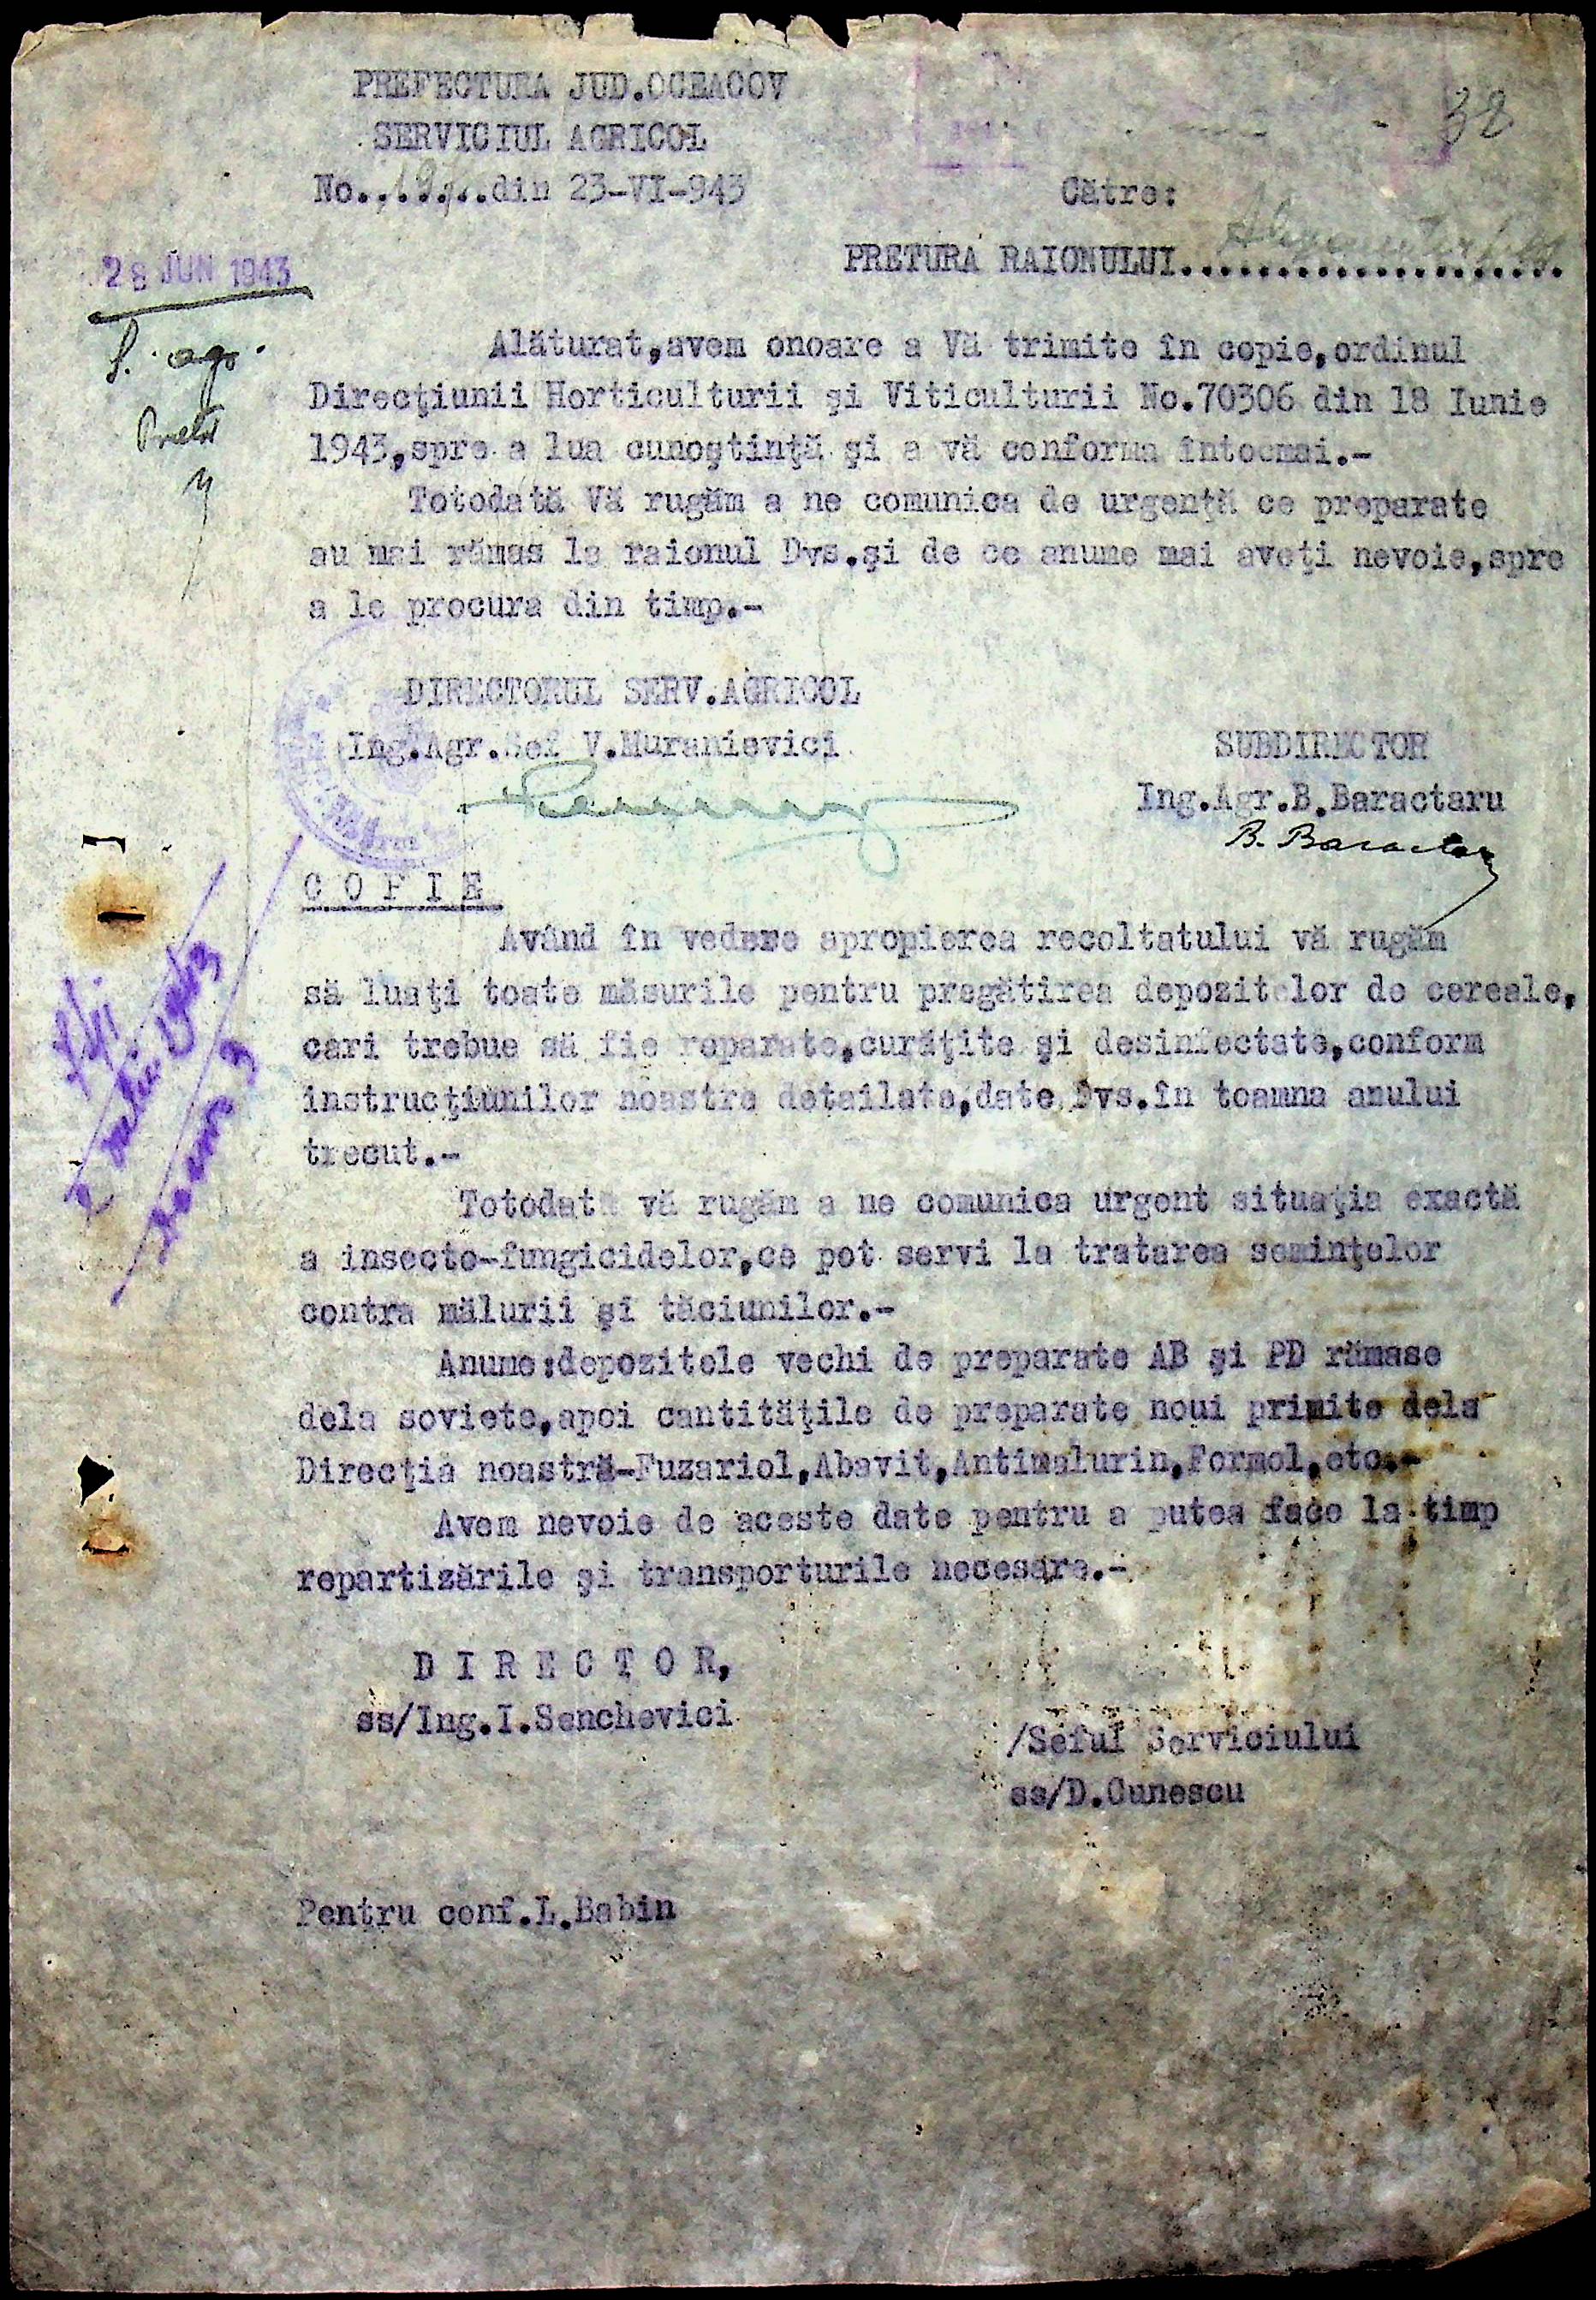 38
PREFECTURA JUD.OCEACOV
SERVICIUL AGRICOL
No. din 23-VI-943
Către:
PRETURA RAIONULUI
28 JUN 1943
S. agr.
Alăturat,avem onoare a Vă trimite în copie,ordinul
Direcţiunii Horticulturii şi Viticulturii No.70306 din 18 Iunie
1943,spre a lua cunoştinţă şi a vă conforma întocmai.-
Totodată Vă rugăm a ne comunica de urgenţă ce preparate
au mai rămas la raionul Dvs.şi de ce anume mai aveţi nevoie,spre
a le procura din timp.-
DIRECTORUL SERV.AGRICOL
Ing.Agr.Sef V.Muranievici
SUBDIRECTOR
Ing.Agr.B.Baractaru
B. Baractaru
C O P I E
Având în vedere apropierea recoltatului vă rugăm
să luaţi toate măsurile pentru pregătirea depozitelor de cereale,
cari trebue să fie reparate,curăţite şi desinfectate,conform
instrucţiunilor noastre detailate,date Dvs.în toamna anului
trecut.-
Totodată vă rugăm a ne comunica urgent situaţia exactă
a insecto-fungicidelor,ce pot servi la tratarea seminţelor
contra mălurii şi tăciunilor.-
Anume:depozitele vechi de preparate AB şi PD rămase
dela soviete,apoi cantităţile de preparate noui primite dela
Direcţia noastră-Fuzariol,Abavit,Antimalurin,Formol,etc.-
Avem nevoie de aceste date pentru a putea face la timp
repartizările şi transporturile necesare.-
D I R E C T O R,
ss/Ing.I.Senchevici
/Seful Serviciului
ss/D.Cunescu
Pentru conf.L.Babin